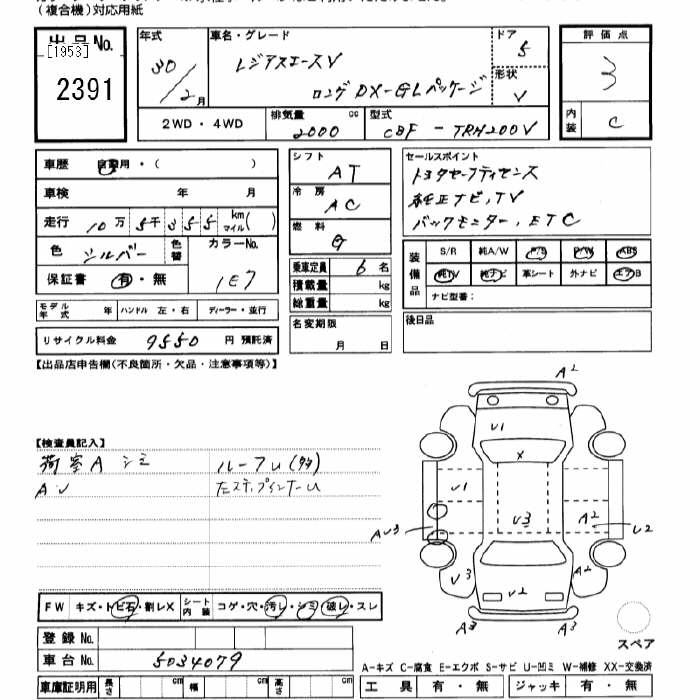 (複合機)対応用紙
出品No. 年式 車名・グレード ドア 評価点
[1953] 30 レジアスエースV 5
2391 2月 ロングDX-GLパッケージ 形状 V 3
2WD・4WD 排気量 2000 cc 型式 CBF-TRH200V 内装 C
車歴 自家用・( )
車検 年 月
走行 10万5千355 km マイル( )
色 シルバー 色替 カラーNo. 1E7
保証書 有・無
モデル年式 年 ハンドル 左・右 ディーラー・並行
リサイクル料金 9550 円 預託済
シフト AT
冷房 AC
燃料 G
乗車定員 6 名
積載量 kg
総重量 kg
名変期限 月 日
セールスポイント
トヨタセーフティセンス
純正ナビ,TV
バックモニター,ETC
装備品 S/R 純A/W P/S P/W ABS
純TV 純ナビ 革シート 外ナビ エアB
ナビ型番:
後日品
【出品店申告欄(不良箇所・欠品・注意事項等)】
【検査員記入】
荷室A シミ ルーフU(多)
AU
A2
U1
X
U1
U3
A2
AU3
U2
U3
U2
A2
A3
A3
スペア
FW キズ・トビ石・割レX シート内装 コゲ・穴・汚レ・シミ・破レ・スレ
登録No.
車台No. 5034079
車庫証明用 長さ cm 幅 cm 高さ cm
A-キズ C-腐食 E-エクボ S-サビ U-凹ミ W-補修 XX-交換済
工具 有・無 ジャッキ 有・無